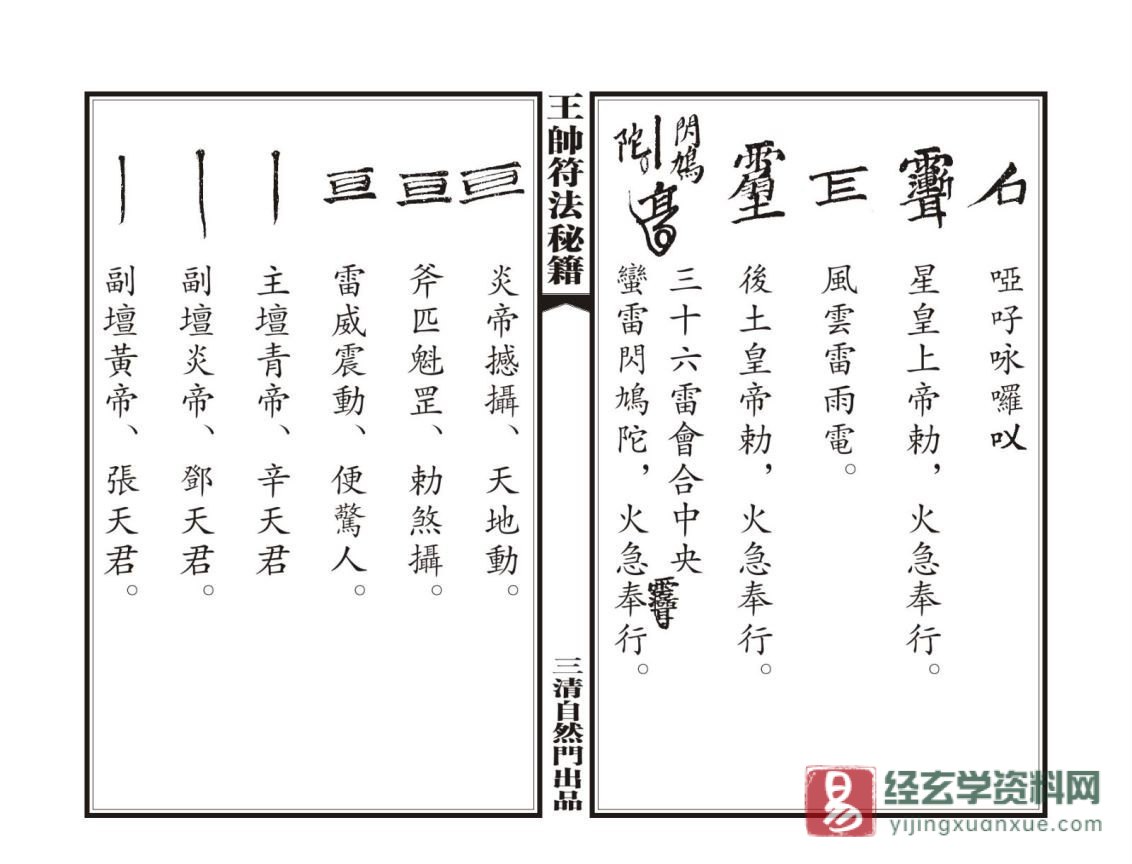 啞吇咏囉㕥
星皇上帝勅，火急奉行。
風雲雷雨電。
後土皇帝勅，火急奉行。
閃鳩
三十六雷會合中央
陀
蠻雷閃鳩陀，火急奉行。
王帥符法秘籍
三清自然門出品
炎帝撼攝、天地動。
斧匹魁罡、勅煞攝。
雷威震動、便驚人。
主壇青帝、辛天君
副壇炎帝、鄧天君。
副壇黃帝、張天君。
易
经玄学资料网
yijingxuanxue.com